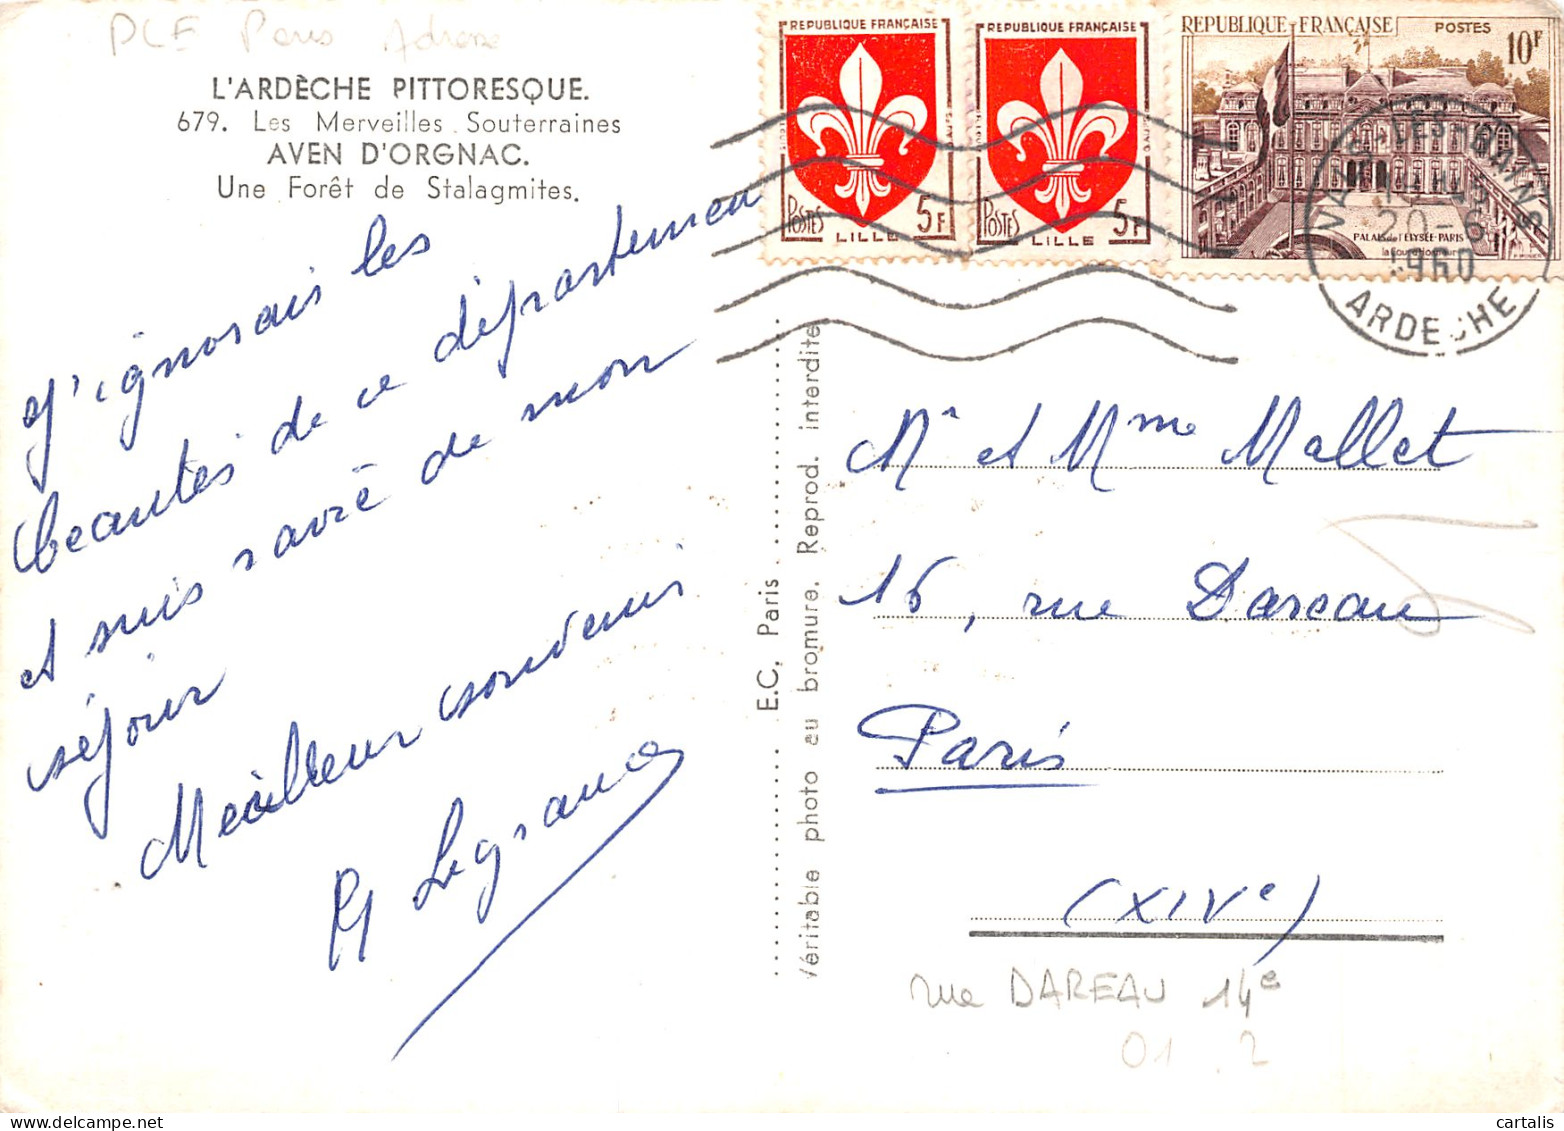 PCF Paris Adresse
L'ARDÈCHE PITTORESQUE.
679. Les Merveilles Souterraines
AVEN D'ORGNAC.
Une Forêt de Stalagmites.
J'ignorais les
beautés de ce département
et suis ravie de mon
séjour
Meilleur souvenir
Legrand
E.C. Paris
Véritable photo au bromure. Reprod. interdite
REPUBLIQUE FRANÇAISE
POSTES
5F
LILLE
REPUBLIQUE FRANÇAISE
POSTES
5F
LILLE
REPUBLIQUE FRANÇAISE
POSTES
10F
PALAIS de l'ELYSÉE-PARIS
la Cour d'Honneur
VALS-LES-BAINS
20-6
1960
ARDECHE
Mr et Mme Mallet
16, rue Dareau
Paris
(XIVe)
rue DAREAU 14e
01 2
cartalis
www.delcampe.net